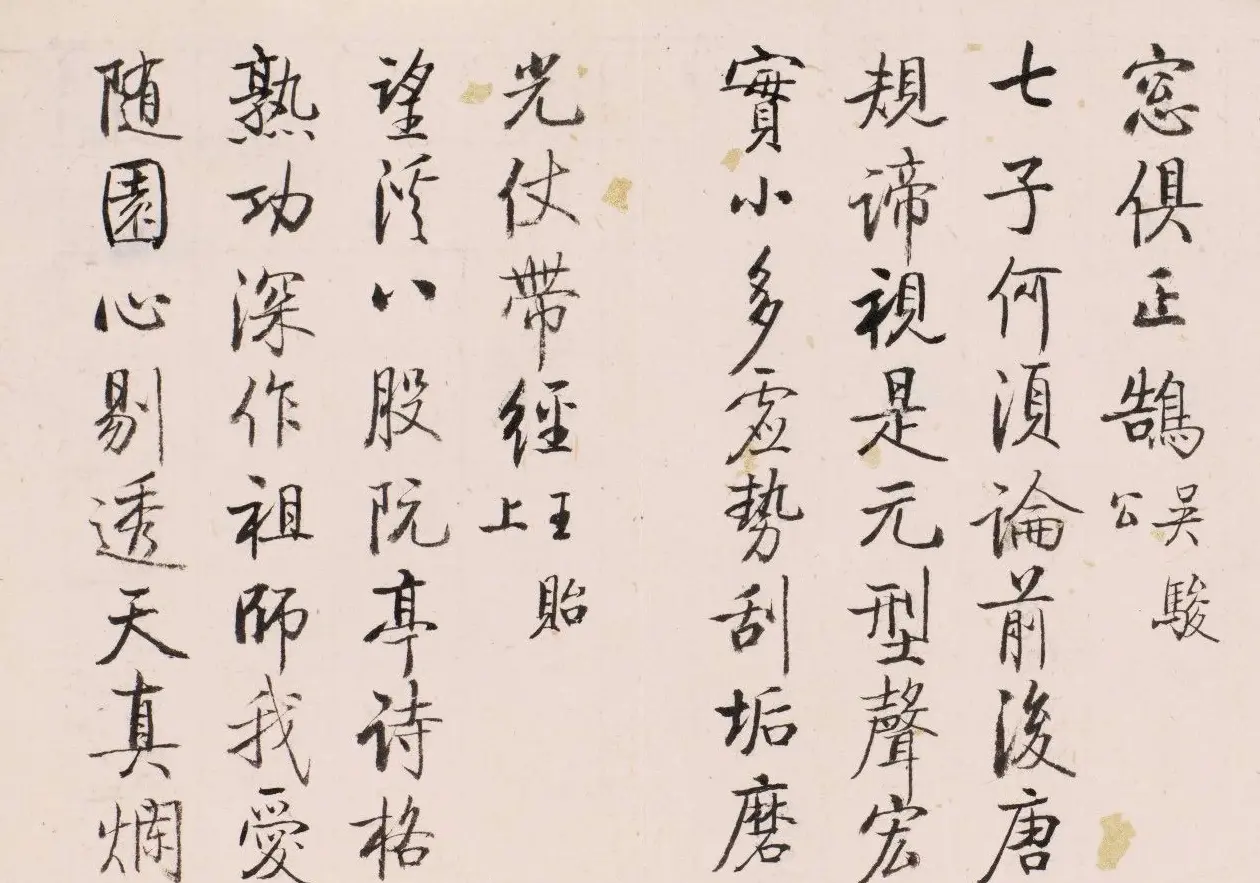 窓俱正鵠吳駿公
七子何須論前後唐
規諦視是元型聲宏
實小多虛勢刮垢磨
光仗帶經王貽上
望溪八股阮亭诗格
熟功深作祖師我愛
随園心剔透天真爛